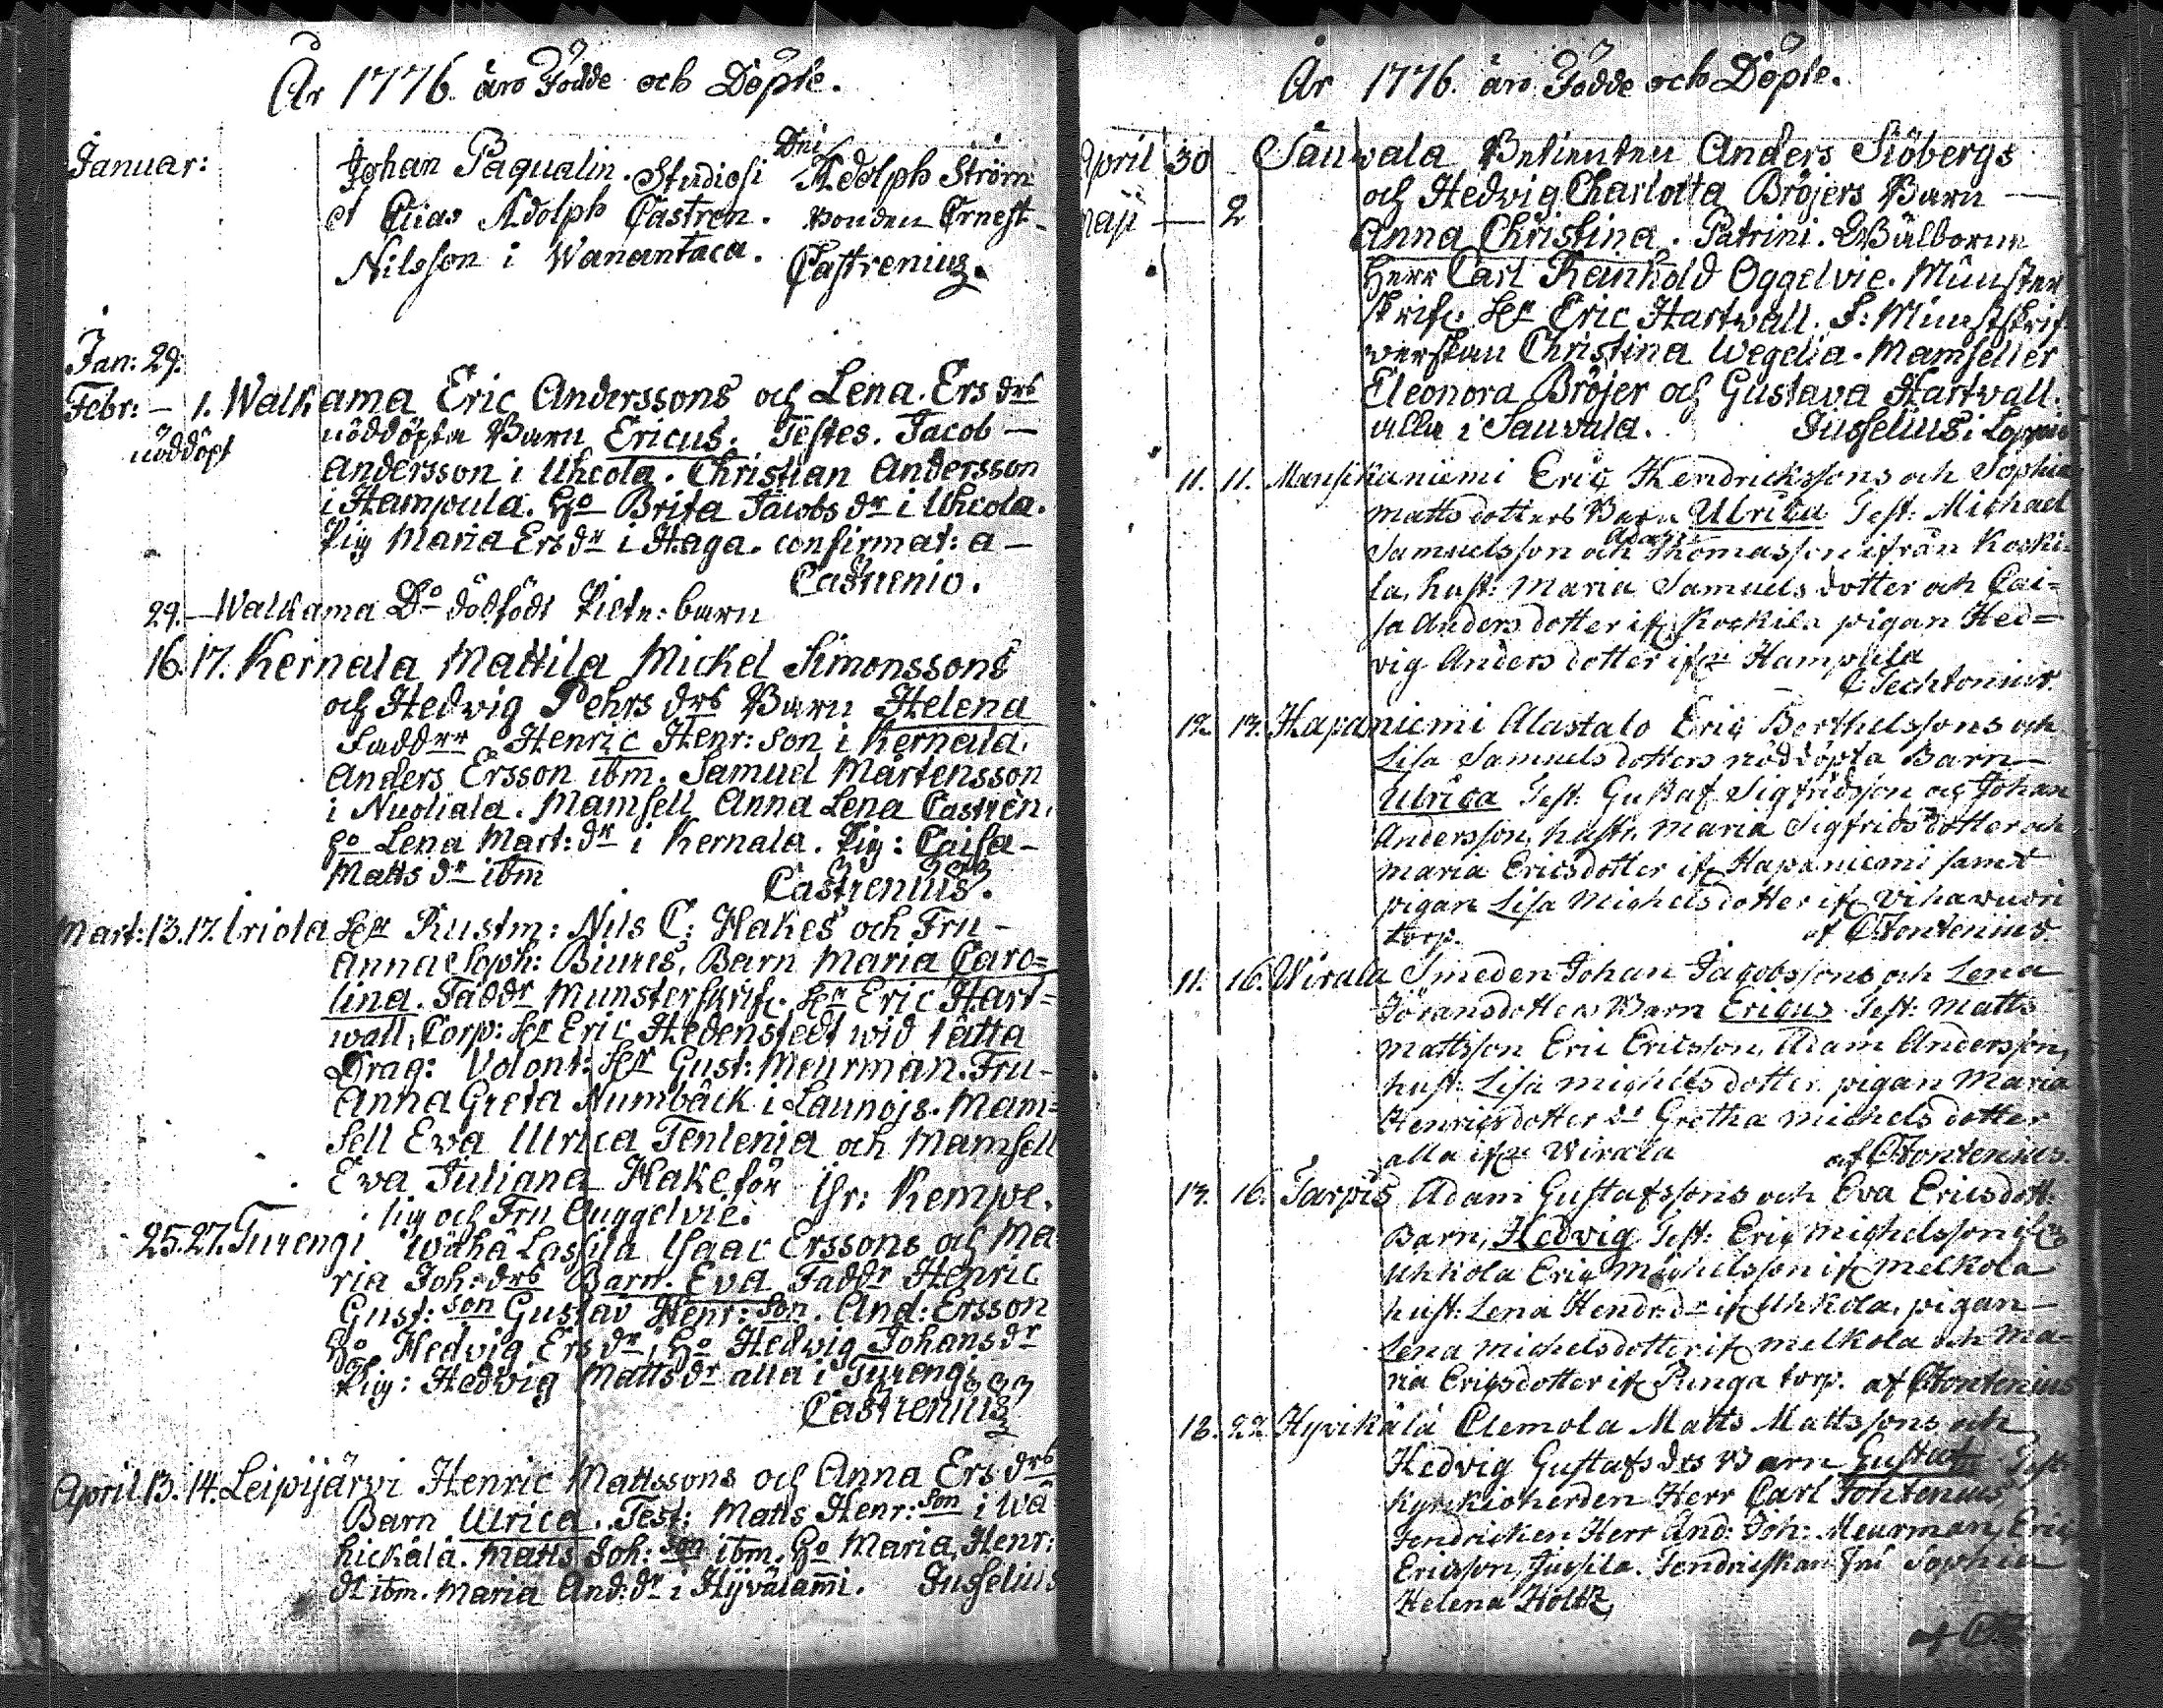 År 1776. äro Födde och Döpte.
Januar: Johan Paqualin. Studiosi Dni Adolph Ström
et Elias Adolph Castren. bonden Ernest
Nilsson i Wanantaca. Castrenius.
Jan: 29.
Febr: — 1. Walkama Eric Anderssons och Lena Ers drs
nöddöpt nöddöpta Barn Ericus. Testes. Jacob —
Andersson i Uhcola. Christian Andersson
i Hampula. Ho Brita Jacobs dr i Uhcola.
Pig Maria Ers dr i Haga. confirmat: a —
Castrenio.
29. — Walkama Do dödfödt barn
16. 17. Kernala Mattila Mickel Simonssons
och Hedvig Pehrs drs Barn Helena
Faddrr Henric Henr: son i Kernala.
Anders Ersson ibm. Samuel Mårtensson
i Nuoliala. Mamsell Anna Lena Castrèn.
Ho Lena Mart: dr i Kernala. Pig: Caisa
Matts dr ibm Castrenius.
Mart: 13. 17. Iriola Her Rustm: Nils C: Hakes och Fru
Anna Soph: Biures, Barn Maria Caro=
lina. Faddr Munsterskrif. Her Eric Hart=
wall, Corp: Her Eric Hedenstedt wid lätta
Drag: Volont: Her Gust: Meurman. Fru
Anna Greta Numbäck i Launojs. Mam=
sell Eva Ulrica Tenlenia och Mamsell
Eva Juliana Hake för
sig och Fru Ouggelvie. Gr: Kempe.
25. 27. Turengi Wähä Lassila Isaac Erssons och Ma
ria Joh: drs Barn. Eva Faddr Henric
Gust: son Gustav Henr: son. And: Ersson
Ho Hedvig Ers dr, Ho Hedwig Johans dr
Pig: Hedvig Matts dr alla i Turengi
Castrenius
April 13. 14. Leipijärvi Henric Mattssons och Anna Ers drs
Barn Ulrica. Test: Matts Henr: son i Wä
hickälä. Matts Joh: son ibm. Ho Maria Henr:
dr ibm. Maria And: dr i Hyvälammi. Jusselius
År 1776. äro Födde och Döpte.
April 30 Sauvala Betienten Anders Siöbergs
och Hedvig Charlotta Bröjers Barn —
Maji — 2 Anna Christina. Patrini. Wälborne
Herr Carl Reinhold Oggelvie. Münster
skrif. Her Eric Hartwall. F: Münstskrif
werskan Christina Wegelia. Mamseller
Eleonora Bröjer och Gustava Hartvall.
alla i Sauvala. Jusselius i Loppis
11. 11. Mansikaniemi Eric Hendrickssons och Sophia
Matts dotters Barn Ulrica Test: Michael
Samuelsson och Adam Thomasson ifrån Koski=
la, hust: Maria Samuels dotter och Cai=
sa Anders dotter if Koskila pigan Hed=
vig Anders dotter ifrn Hampula
C Techtonius.
12. 13. Hapaniemi Alastalo Eric Berthelssons och
Lisa Samuels dotters nöddöpta Barn
Ulrica Test: Gustaf Sigfridsson och Johan
Andersson, hustr. Maria Sigfrids dotter och
Maria Ericsdotter if Hapaniemi samt
pigan Lisa Michelsdotter if Vihavuori
torp. af CFontenius.
11. 16. Wirala Smeden Johan Jacobssons och Lena
Göransdotters Barn Ericus Test: Matts
Mattsson Eric Ericsson, Adam Andersson,
hust: Lisa Michelsdotter pigan Maria
Henricsdotter do Gretha Michels dotter
alla ifrn Wirala af CFontenius.
13. 16. Tarpis Adam Gustafssons och Eva Ericsdott.
Barn, Hedvig Test: Eric Michelsson if
Uhkola Eric Michelsson if Melkola
hust: Lena Hendr: dr if Uhkola, pigan
Lena Michelsdotter if Melkola och Ma=
ria Ericsdotter if Punga torp. af CFontenius
18. 22. Hyvikälä Clemola Matts Mattssons och
Hedvig Gustafs drs Barn Gustaf Test:
Kyrckioherden Herr Carl Fontenius,
Fendricken Herr And: Joh: Meurman, Eric
Ericsson, Jussila. Fendriskan Fru Sophia
Helena Holtz,